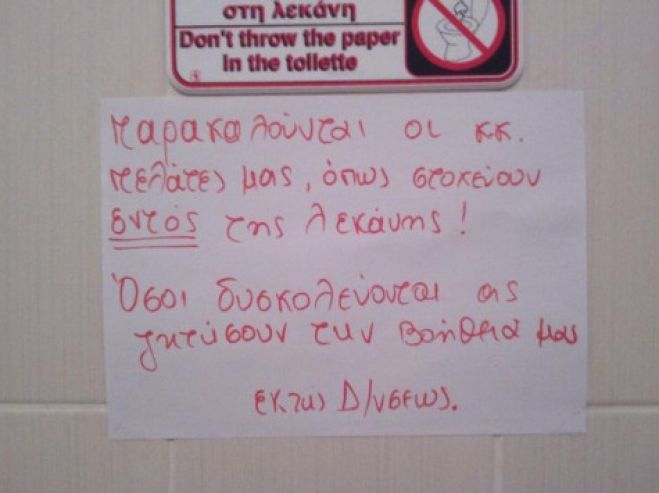 στη λεκάνη
Don't throw the paper
in the toilette
Παρακαλούνται οι κκ.
πελάτες μας, όπως στοχεύουν
εντός της λεκάνης!
Όσοι δυσκολεύονται ας
ζητήσουν την βοήθειά μας
εκ της Δ/νσεως.